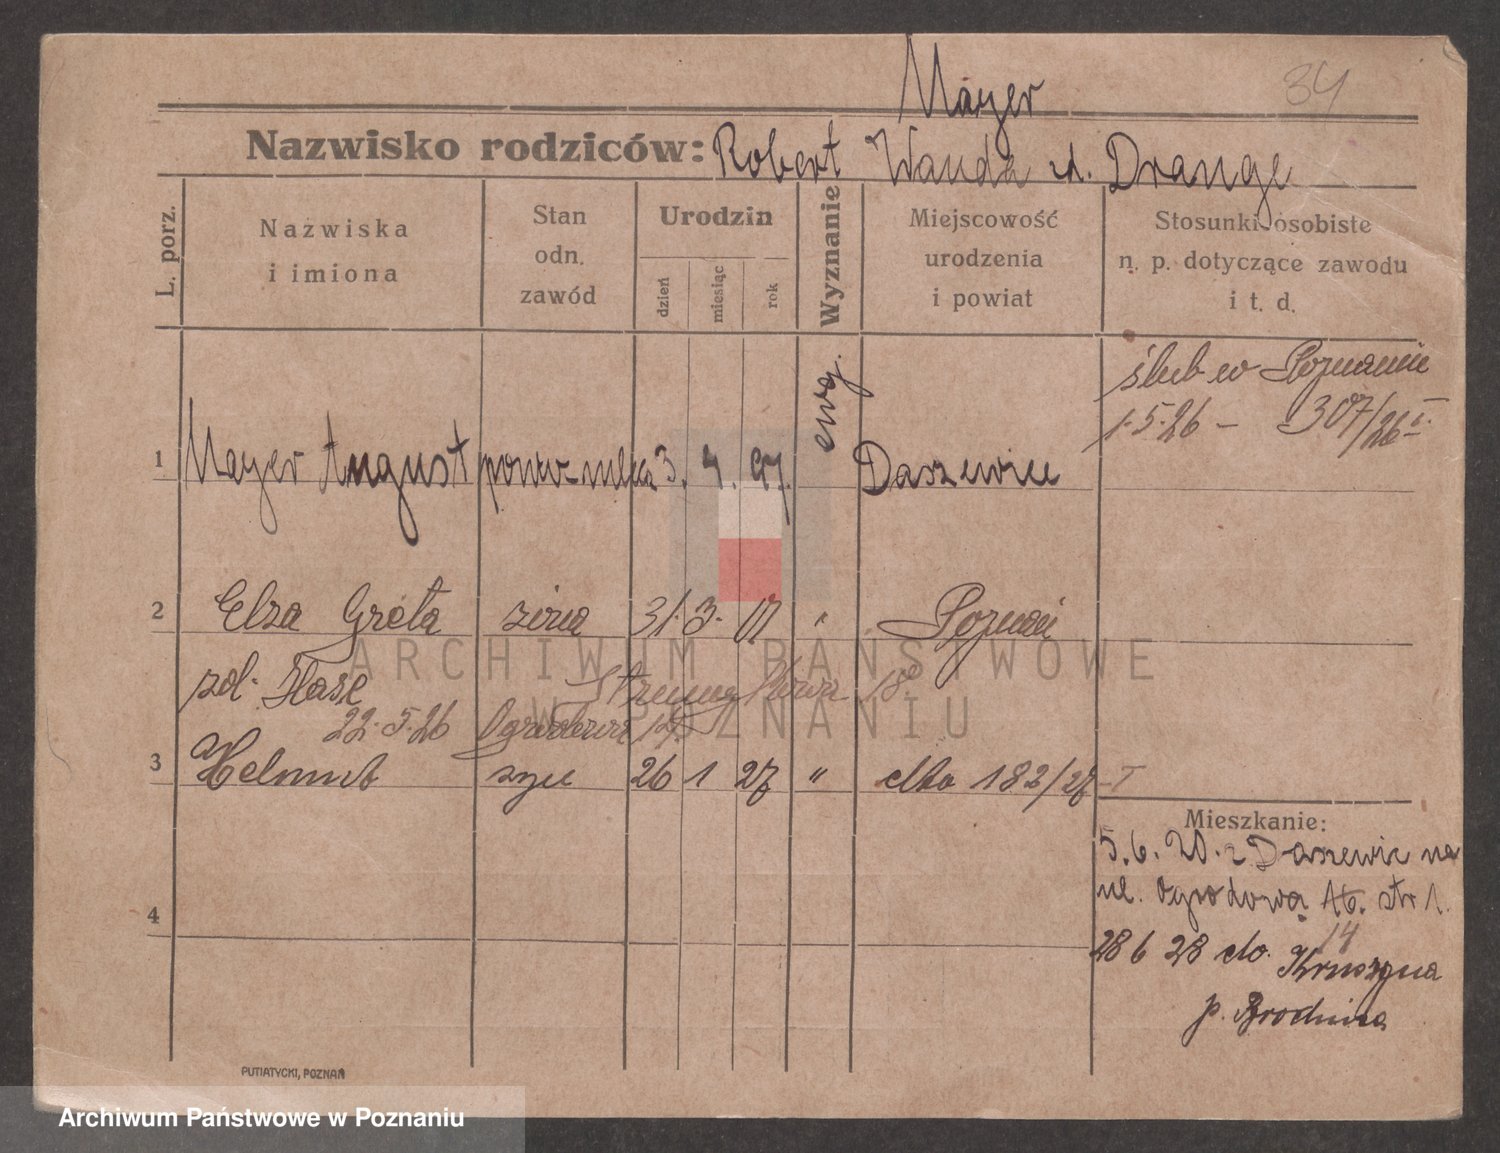 Mayer
34
Nazwisko rodziców: Robert Wanda zd. Drange
L. porz.
Nazwiska i imiona
Stan odn. zawód
Urodzin
dzień
miesiąc
rok
Wyznanie
Miejscowość urodzenia i powiat
Stosunki osobiste n. p. dotyczące zawodu i t. d.
ślub w Poznaniu
1.5.26 – 307/26
1 Mayer August 3. 4. 97. ewg. Daszewice
2 Elza Greta żona 31. 3. 07 " Poznań
zol. Hase
22.5.26 Ogrodowa 14
3 Helmut syn 26 1 27 " 182/27
4
Mieszkanie:
5.6.20. z Daszewic na
ul. Ogrodowa 16. str 1.
14
28 6 28 do Kruszyna
p. Brodnica
PUTIATYCKI, POZNAŃ
ARCHIWUM PAŃSTWOWE
W POZNANIU
Archiwum Państwowe w Poznaniu